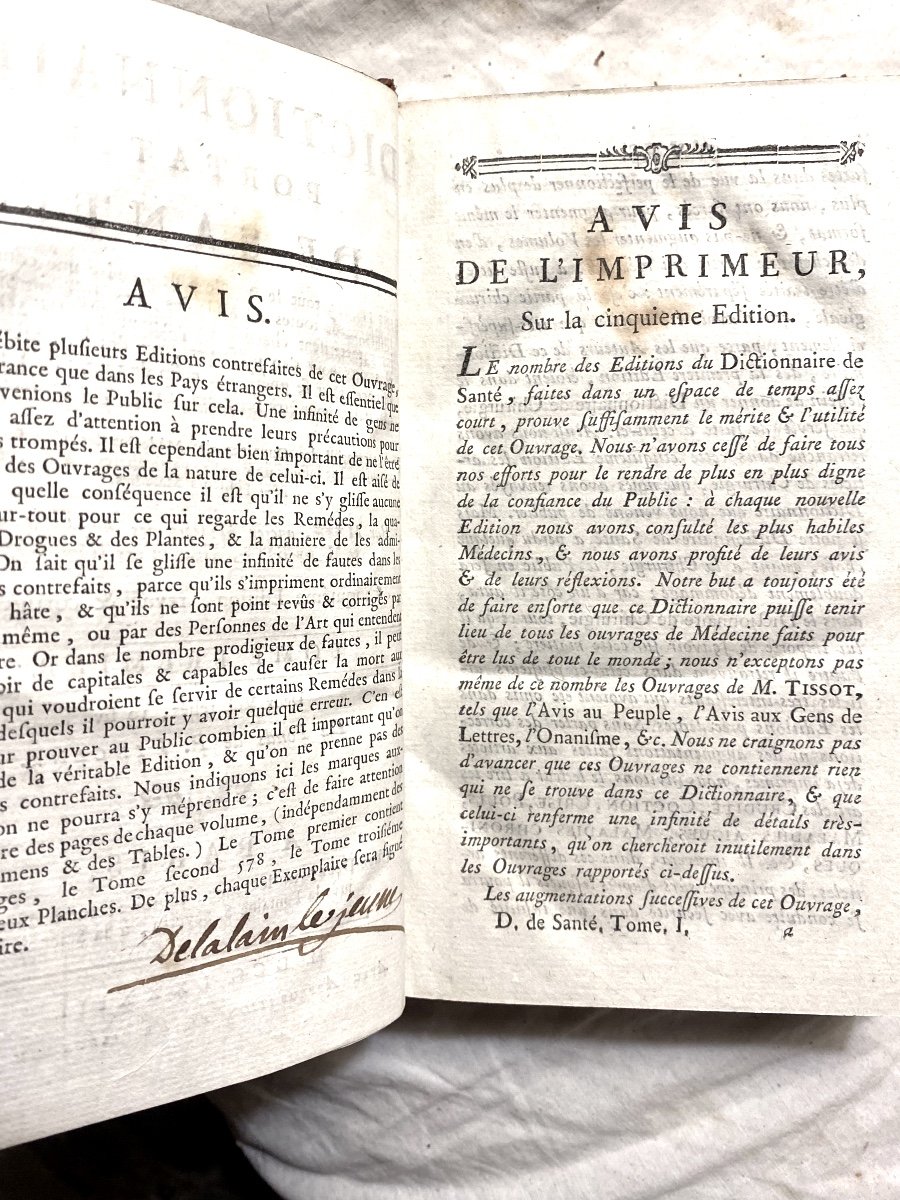 AVIS.
plusieurs Editions contrefaites de cet Ouvrage,
que dans les Pays étrangers. Il est essentiel que
le Public sur cela. Une infinité de gens ne
assez d'attention à prendre leurs précautions pour
trompés. Il est cependant bien important de ne l'être
des Ouvrages de la nature de celui-ci. Il est aisé de
quelle conséquence il est qu'il ne s'y glisse aucune
ur-tout pour ce qui regarde les Remédes, la qua-
Drogues & des Plantes, & la maniere de les admi-
On sait qu'il se glisse une infinité de fautes dans les
contrefaits, parce qu'ils s'impriment ordinairement
hâte, & qu'ils ne sont point revûs & corrigés par
même, ou par des Personnes de l'Art qui entendent
re. Or dans le nombre prodigieux de fautes, il peut
oir de capitales & capables de causer la mort aux
qui voudroient se servir de certains Remédes dans
desquels il pourroit y avoir quelque erreur. C'en est
prouver au Public combien il est important qu'on
de la véritable Edition, & qu'on ne prenne pas des
contrefaits. Nous indiquons ici les marques aux-
on ne pourra s'y méprendre; c'est de faire attention
re des pages de chaque volume, (indépendamment des
mens & des Tables.) Le Tome premier contient
ges, le Tome second 578, le Tome troisiéme
eux Planches. De plus, chaque Exemplaire sera signé
ire.
Delalain le jeune
AVIS
DE L'IMPRIMEUR,
Sur la cinquieme Edition.
LE nombre des Editions du Dictionnaire de
Santé, faites dans un espace de temps assez
court, prouve suffisamment le mérite & l'utilité
de cet Ouvrage. Nous n'avons cessé de faire tous
nos efforts pour le rendre de plus en plus digne
de la confiance du Public : à chaque nouvelle
Edition nous avons consulté les plus habiles
Médecins, & nous avons profité de leurs avis
& de leurs réflexions. Notre but a toujours été
de faire ensorte que ce Dictionnaire puisse tenir
lieu de tous les ouvrages de Médecine faits pour
être lus de tout le monde; nous n'exceptons pas
même de ce nombre les Ouvrages de M. TISSOT,
tels que l'Avis au Peuple, l'Avis aux Gens de
Lettres, l'Onanisme, &c. Nous ne craignons pas
d'avancer que ces Ouvrages ne contiennent rien
qui ne se trouve dans ce Dictionnaire, & que
celui-ci renferme une infinité de détails très-
importants, qu'on chercheroit inutilement dans
les Ouvrages rapportés ci-dessus.
Les augmentations successives de cet Ouvrage,
D. de Santé, Tome I. a